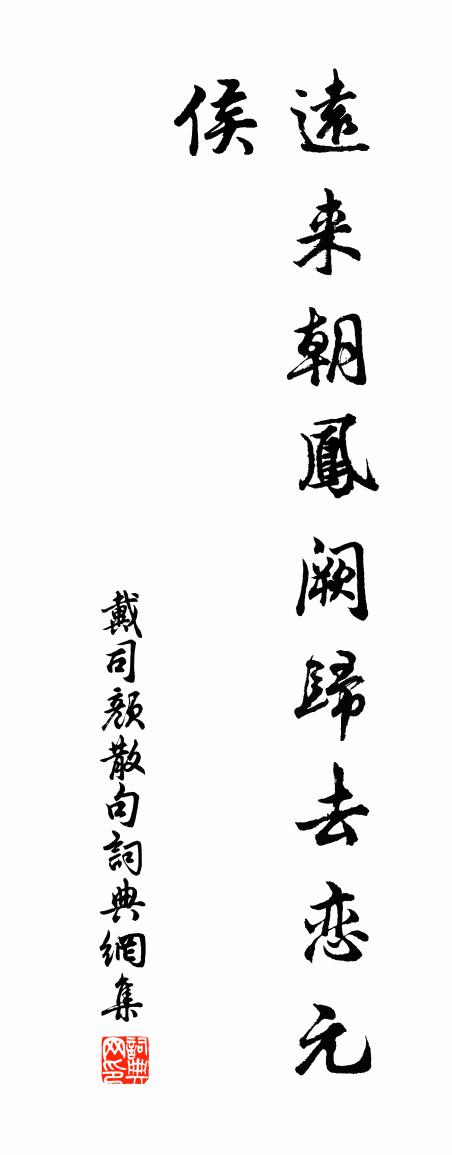 遠来朝鳳闕歸去恋元
侯
戴司顏散句詞典網集
詞典
网印